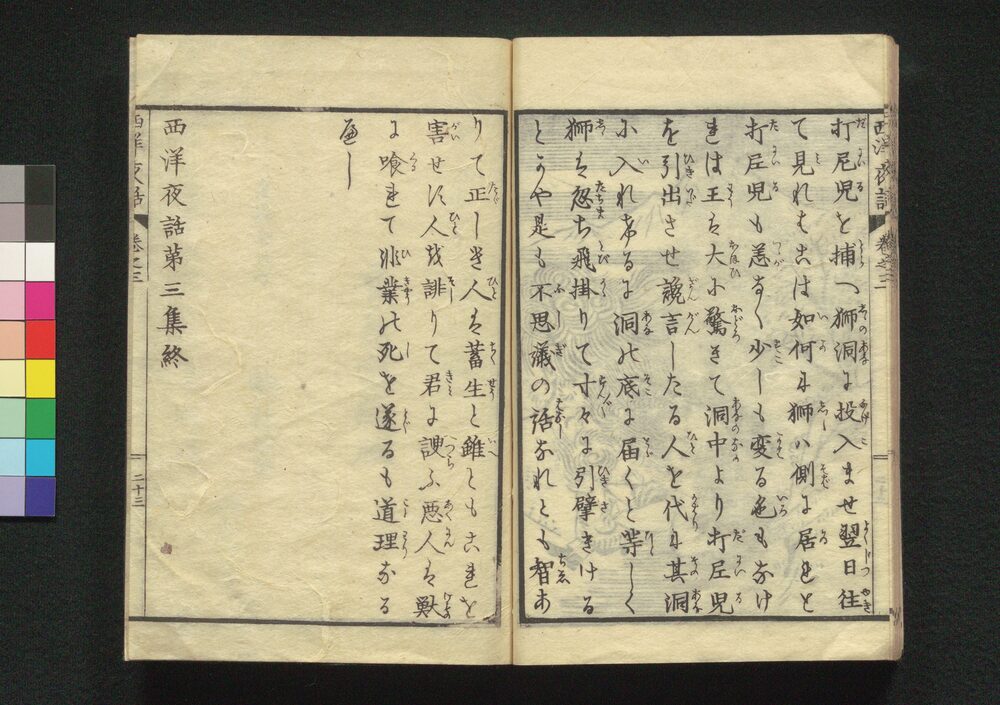 西洋夜話 巻之三
打尼児を捕へ獅洞に投入ませ翌日往
て見れもこは如何に獅ハ側に居れと
打尼児も恙なく少しも変る色もなけ
れは王は大に驚きて洞中より打尼児
を引出させ讒言したる人を代に其洞
に入れけるに洞の底に届くと等しく
獅は忽ち飛掛りて寸々に引擘きける
とかや是も不思議の話なれとも智あ
りて正しき人は蓄生と雖ともこれを
害せす人を誹りて君に諛ふ悪人は獣
に喰れて非業の死を遂るも道理なる
べし
西洋夜話第三集終
西洋夜話 巻之三
二十三